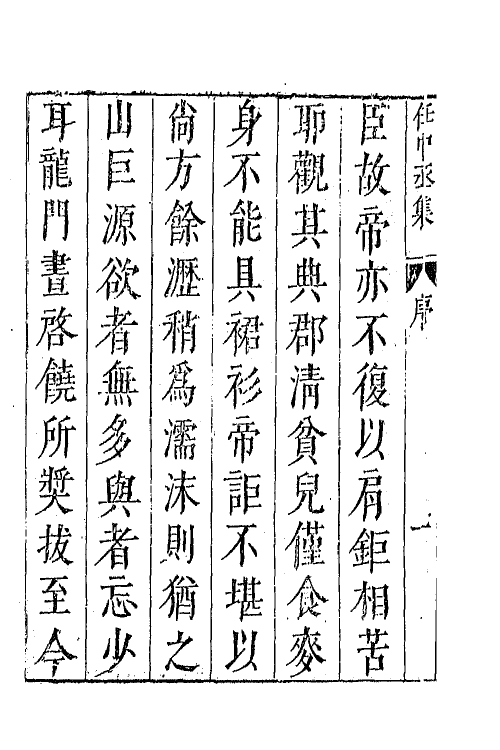 任中丞集 序 一
臣故帝亦不復以屑鉅相苦
耶觀其典郡清貧兒僅食麥
身不能具裙衫帝詎不堪以
尚方餘瀝稍為濡沫則猶之
山巨源欲者無多與者忘少
耳龍門晝啓饒所奬拔至今